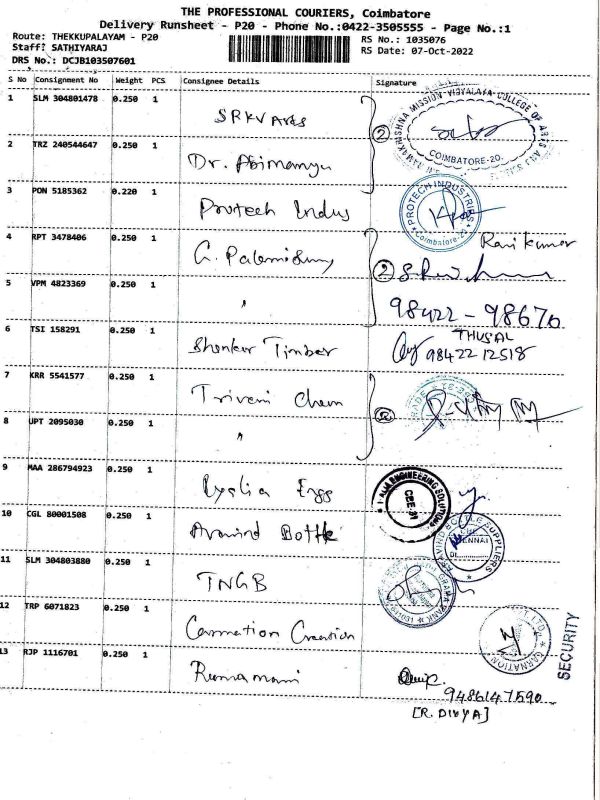 THE PROFESSIONAL COURIERS, Coimbatore
Delivery Runsheet - P20 - Phone No.:0422-3505555 - Page No.:1
Route: THEKKUPALAYAM - P20
Staff: SATHIYARAJ
DRS No.: DCJB103507601
RS No.: 1035076
RS Date: 07-Oct-2022
S No Consignment No Weight PCS Consignee Details Signature
1 SLM 304801478 0.250 1 SRKV Arts
2 TRZ 240544647 0.250 1 Dr. Abimanyu
2
COIMBATORE-20.
3 PON 5185362 0.220 1 Protech Indus
PROTECH INDUSTRIES
Coimbatore-20
4 RPT 3478406 0.250 1 G. Palanisamy
Ravikumar
2
5 VPM 4823369 0.250 1 "
98422 - 98670
6 TSI 158291 0.250 1 Shankar Timber
THUSAL
98422 12518
7 KRR 5541577 0.250 1 Triveni Chem
8 UPT 2095030 0.250 1 "
9 MAA 286794923 0.250 1 Engg
ENGINEERING SOLUTIONS
CBE-31
10 CGL 80001508 0.250 1 Aravind Bottle
11 SLM 304803880 0.250 1 TNGB
12 TRP 6071823 0.250 1 Carnation Creation
CARNATION
SECURITY
13 RJP 1116701 0.250 1 Ramamani
9486147590
[R. DIVYA]